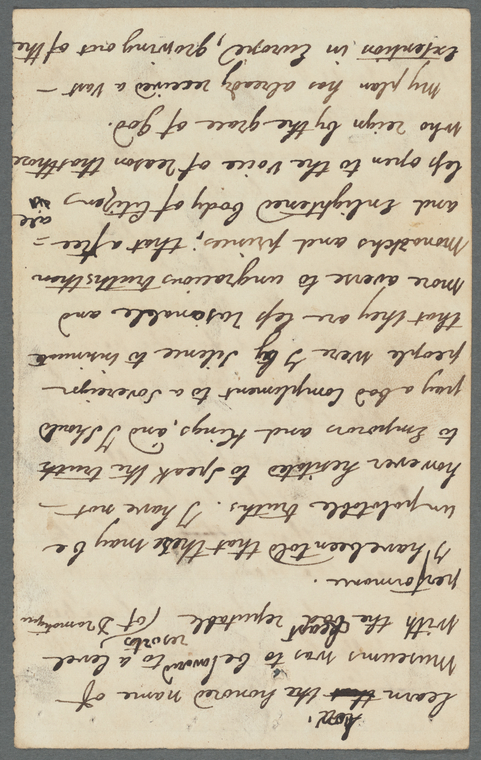 learn that the honored name of
Museums was to be lowered to a level
resorts
with the least reputable (of Dramatique
performance.
I have been told that these may be
unpalatable truths. I have not -
however hesitated to speak the truth
to Emperors and Kings, and I should
pay a bad Complement to a Sovereign
people were I by Silence to insinuate
that they are less reasonable and
more averse to ungracious truths then
monarchs and princes; that a free =
are
and Enlightened body of Citizens is
less open to the Voice of reason than those
who reign by the grace of god.
My plan has already received a vast -
extention in Europe, growing out of the